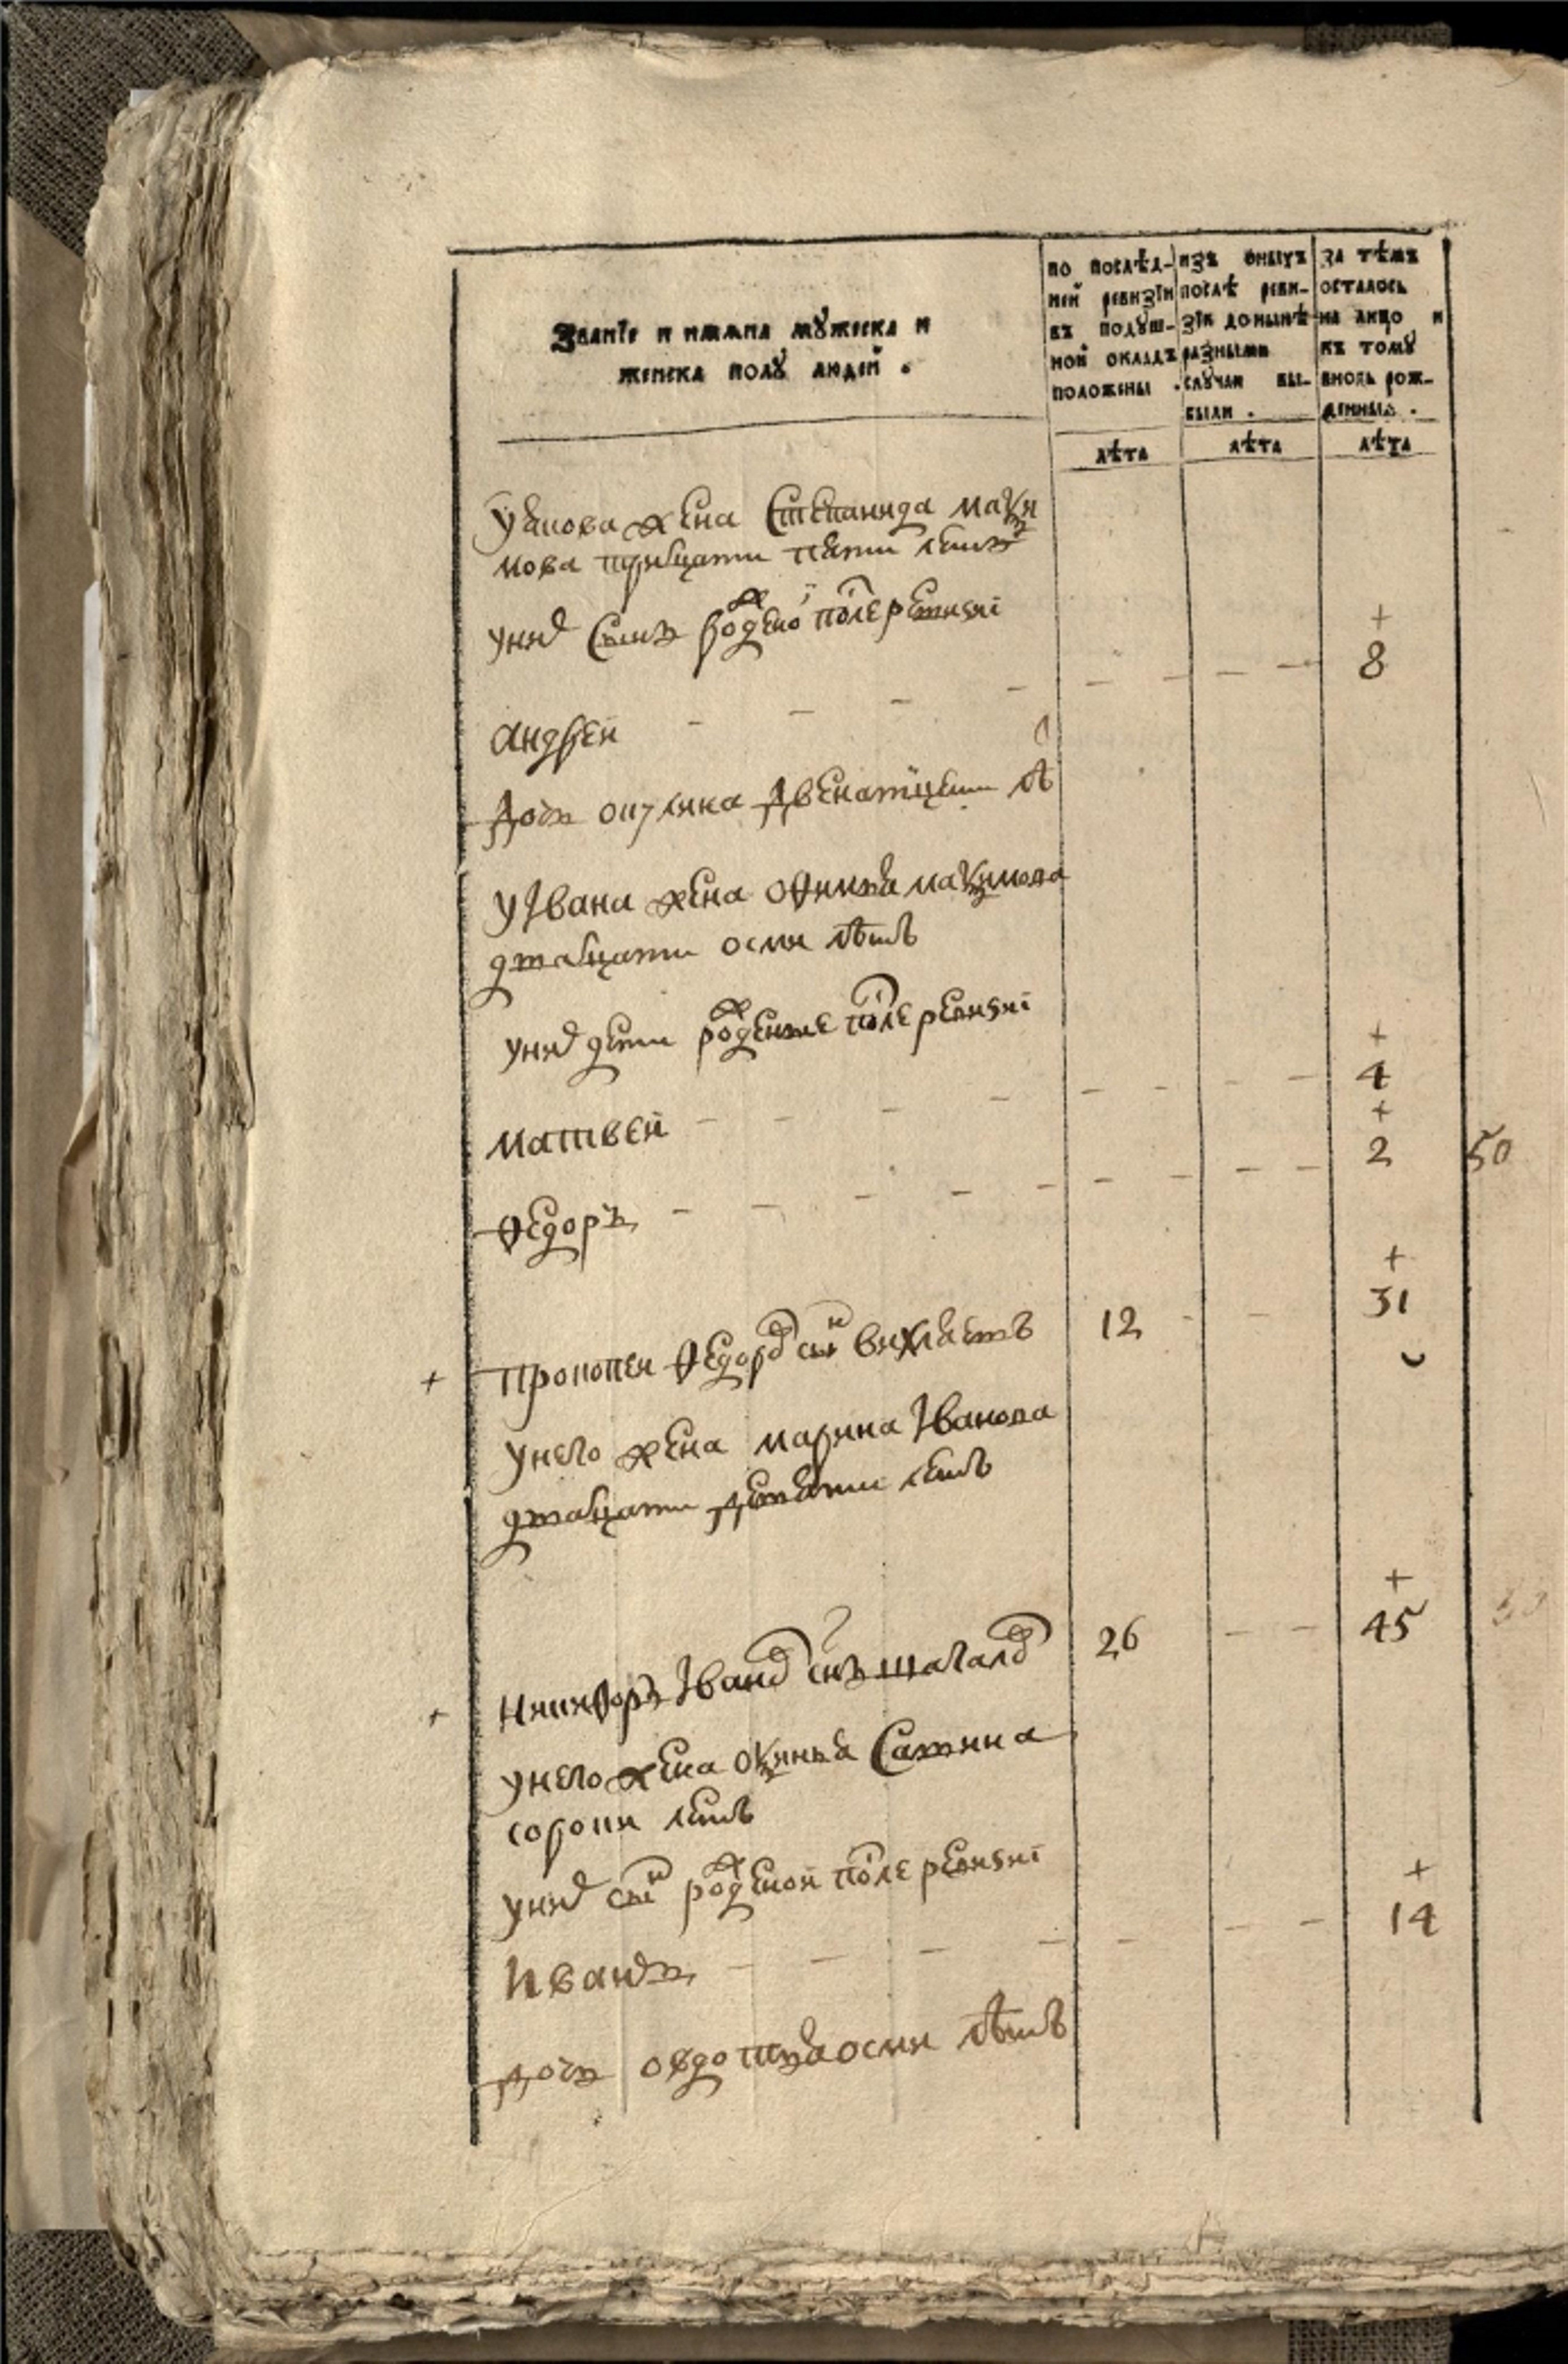 Званїе и имѧна мꙋжеска и
женска полꙋ людей .
по послѣд-
ней ревизїи
въ подꙋш-
ной окладъ
положены .
лѣта
изъ оныхъ
послѣ реви-
зїи донынѣ
разными
слꙋчаи вы-
были .
лѣта
за тѣмъ
осталось
на лицо и
къ томꙋ
вновь рож-
денныхъ .
лѣта
жена Степанида макси
мова тритцати пяти летъ
у них сынъ рожденой после ревизиi
+
андрей 8
дочь двенатцети лѣ
у Iвана жена офимья максимова
дватцати осми лѣтъ
у них дети рожденые после ревизиi
+
матвей 4
+
федоръ 2 50
+
+ прокопей федоров сын 12 31
у него жена марина Iванова
дватцати девяти летъ
+
+ никифоръ Iванов снъ шагалов 26 45
у него жена оксинья Савина
сороки летъ
у них сын рожденой после ревизиi
+
Иванъ 14
дочь овдотья осми лѣтъ